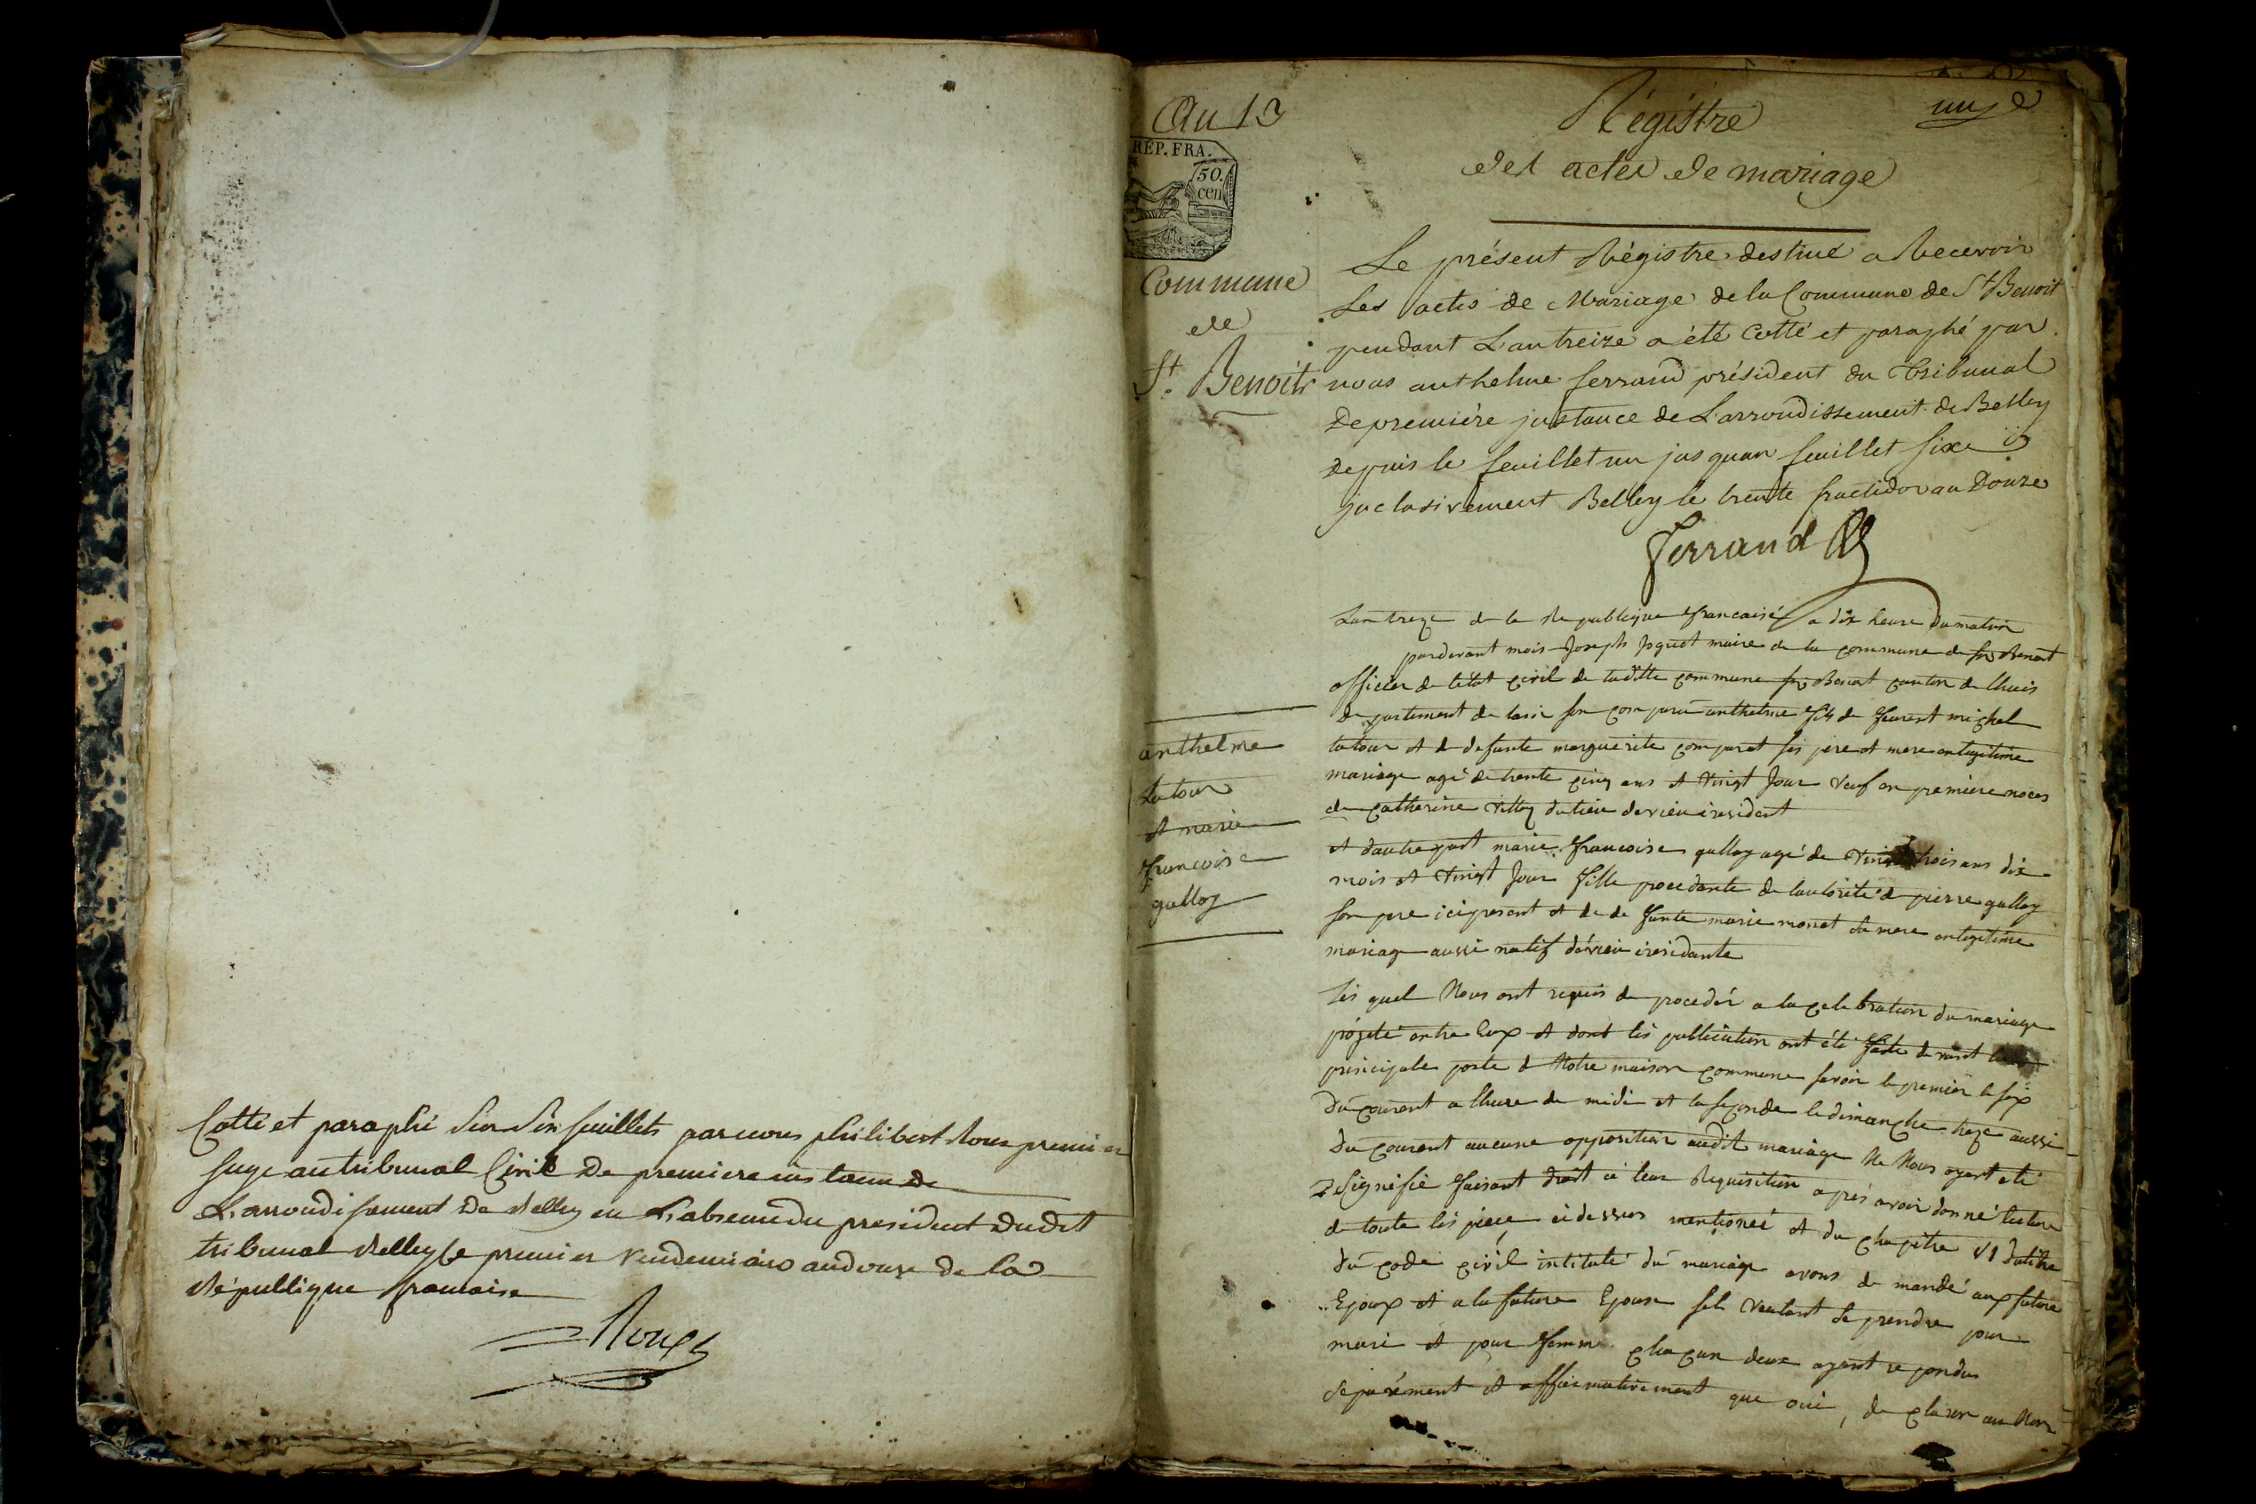 Cotté et paraphé sur six feuillets par nous philibert Roux premier
juge au tribunal Civil De premiere instance de
L'arrondissement De Belley en L'absence du president Dudit
tribunal Belley le premier vendemiaire an douze De la
République francaise
Roux
An 13
RÉP. FRA.
50.
cen
Commune
de
St. Benoit
anthelme
Latour
et marie
francoise
gulloz
un
Régistre
des actes de mariage
Le présent Régistre destiné a Recevoir
Les actes de Mariage de la Commune de St Benoit
pendant L'an treize a été Cotté et paraphé par
nous anthelme ferrand président du Tribunal
De premiére jnstance de L'arrondissement de Belley
depuis le feuillet un jusquau feuillet sixe
jnclusivement Belley le trente fructidor an Douze
Ferrand
Lan treze de la Republique francaisé a dix heure du matin
pardevant mois Joseph Joguet maire de la commune de st Benoit
officier de letat civil de laditte commune st Benoit canton de lhuis
departement de lain son comparu anthelme fils de feurent michel
latour et de defunte marguerite comparet ses pere et mere enlegitime
mariage agé de trente cinq ans et vingt Jour veuf en premiere noces
de catherine villoz du lieu
et dautre part marie francoise gulloz agé de vingt trois ans dix
mois et vingt Jour fille procedante de lautorité de pierre gulloz
son pere ici present et de defunte marie monet sa mere enlegitime
mariage aussi natif
les quel Nous ont requis de procedér a la celebration du mariage
projeté entre Eux et dont lés publication ont été faite devant la
principale porte de Notre maison commune savoir le premier le six
du courent a lhure de midi et la seconde le dimanche treze aussi
du courent aucune opposition audit mariage Ne Nous ayant eté
signifié faisant droit a leur Requisition aprés avoir donné lecture
de toute lés piece ci dessus mentioneé et du chapitre VI du titre
du code civil intitulé du mariage avons demandé aux future
Epoux et a la future Epouse sils veulent se prendre pour
mari et pour femme chacun deux ayant repondus
separément et affirmativement que oui, declaron au Nom